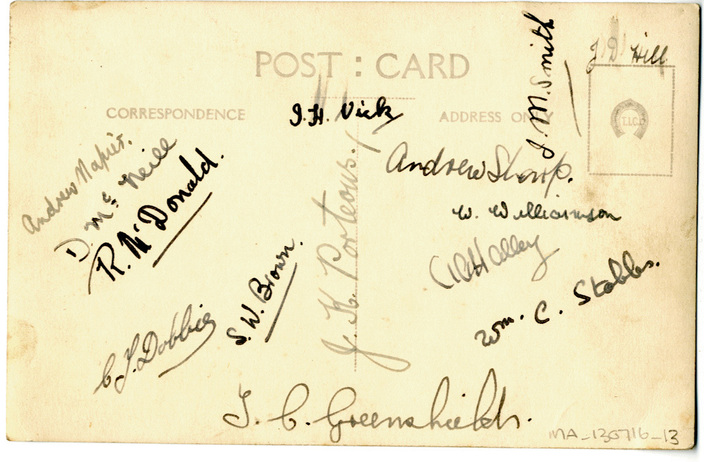 POST : CARD
CORRESPONDENCE
ADDRESS ONLY
J. D Hill
T.I.C.
J. M. Smith
J. H. Vick
Andrew Napier.
D. Mc Neill
R. McDonald.
Andrew Sharp.
W. Williamson
Halley
Wm. C. Stobbs.
J. K. Porteous.
S. W. Brown.
C J. Dobbie
T. C. Greenshields.
MA_130716_13